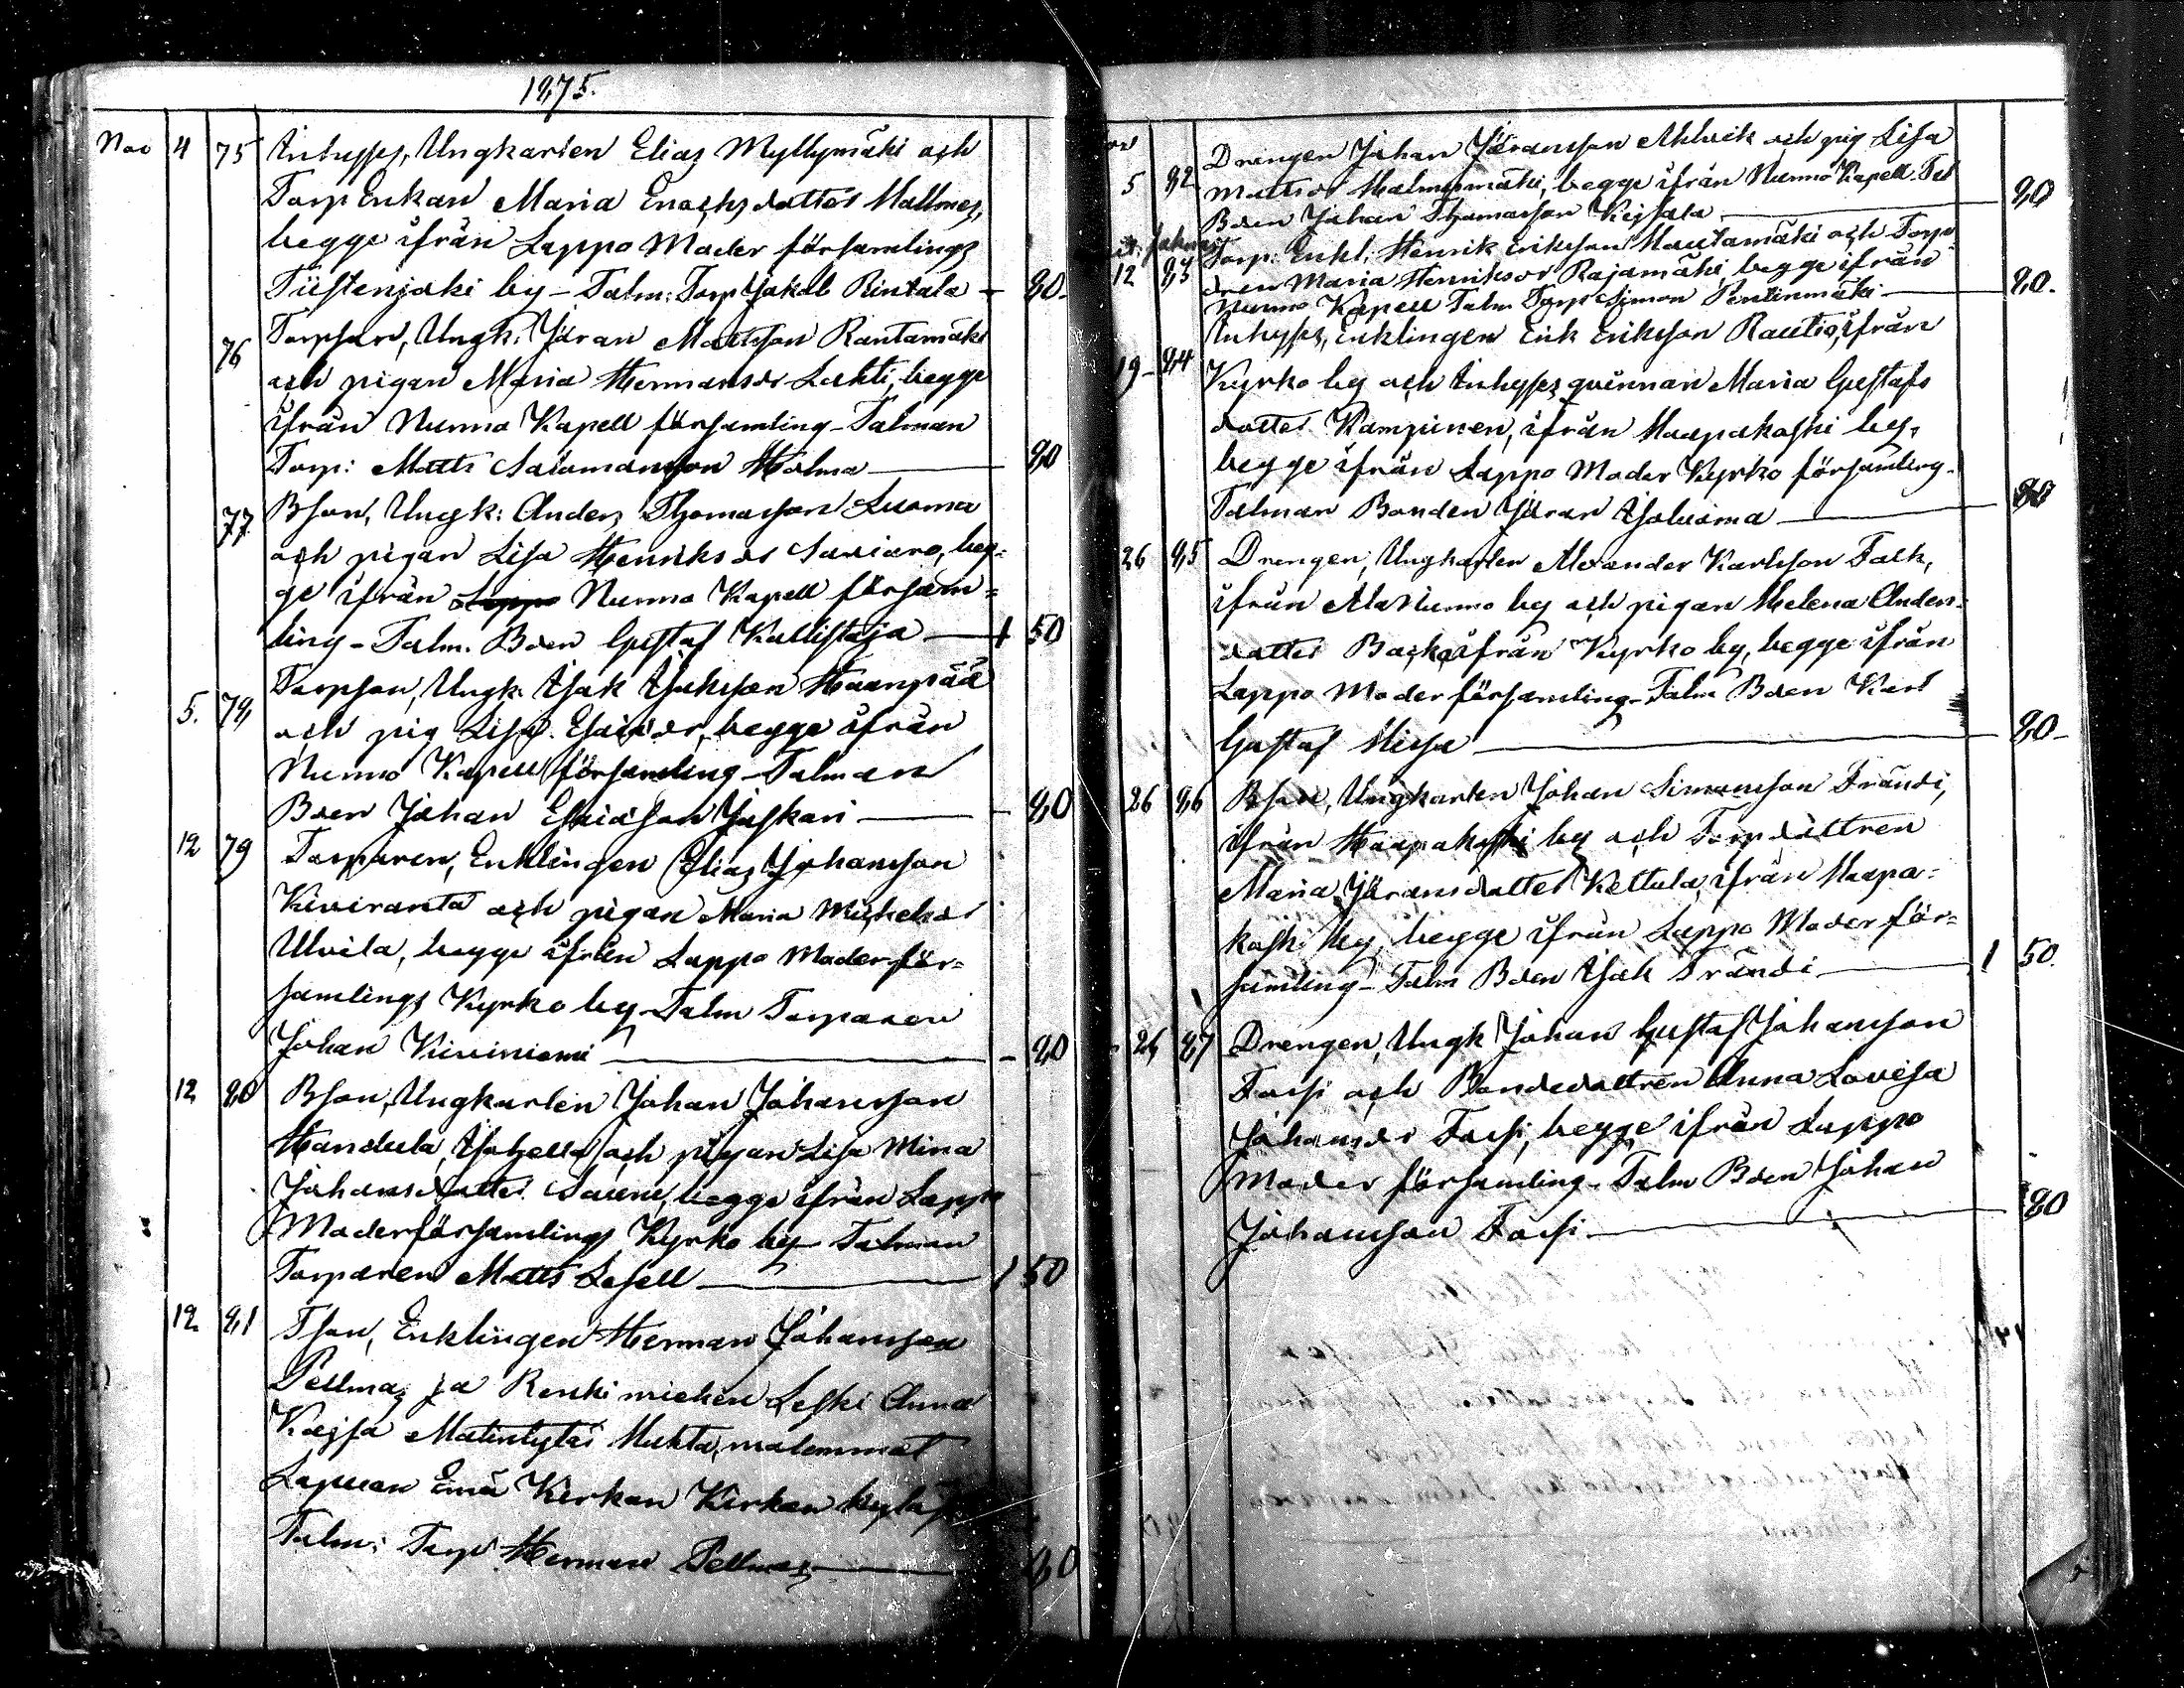 1875.
Nov 4 75 Inhyses, Ungkarlen Elias Myllymäki och
Torp Enkan Maria Enochsdotter Mallmes,
begge ifrån Lappo Moder församlings
Tiistenjoki by - Talm: Torp Jakob Rintala - 80.
76 Torpson, Ungk: Jöran Mattsson Rantamäki
och pigan Maria Hermansdr Lahti, begge
ifrån Nurmo Kapell församling - Talman
Torp: Matts Salomonsson Holma - 80
77 Bson, Ungk: Anders Thomasson Luoma
och pigan Lisa Henriksdr Saviaro, beg=
ge ifrån Lappo Nurmo Kapell försam=
ling - Talm. Bden Gustaf Kallistaja - 1 50
5. 78 Torpson, Ungk. Isak Isaksson Haanpää
och pig Lisa Esaiædr, begge ifrån
Nurmo Kapell församling - Talman
Bden Johan Esaiason Juskari - 80
12 79 Torparen, Enklingen Elias Johansson
Kiviranta och pigan Maria Michelsdr
Ulvila, begge ifrån Lappo Moder för=
samlings Kyrko by - Talm Torparen
Johan Kiviniemi - 80
12 80 Bson, Ungkarlen Johan Johansson
Handula, och pigan Lisa Mina
Johansdotter begge ifrån Lappo
Moderförsamlings Kyrko by - Talman
Torparen Matts Lesell 1 50
12 81 Tson, Enklingen Herman Johansson
Pellmas ja Renki miehen Leski Anna
Kajsa Matintytär Muhta, molemmat
Lapuan Emä Kirkon Kirkon kylä
Talm: Torp Herman Pellmas 80
5 82 Drengen Johan Jöransson Ahlvik och pig Lisa
Mattsdr Malmusmäki, begge ifrån Nurmo Kapell. Tal
Bden Johan Thomasson Kejsala 80
12 83 Torp: Enkl: Henrik Eriksson Mautamäki och Torp
dren Maria Henriksdr Rajamäki, begge ifrån
Nurmo Kapell Talm Torp Simon Penttinmäki 80.
19 84 Inhyses, Enklingen Erik Eriksson Rautio, ifrån
Kyrko by och Inhyses qvinnan Maria Gustafs
dotter Kampinen, ifrån Haapakoski by,
begge ifrån Lappo Moder Kyrko församling.
Talman Bonden Jöran Isoluoma 80
26 85 Drengen, Ungkarlen Alexander Karlsson Falk,
ifrån Ala Nurmo by och pigan Helena Anders
dotter Backa ifrån Kyrko by, begge ifrån
Lappo Moder församling - Talm Bden Karl
Gustaf Hissa 80
26 86 Bson, Ungkarlen Johan Simonsson Frändi,
ifrån Haapakoski by och Torp dottren
Maria Jöransdotter Kettula, ifrån Haapa=
koski by, begge ifrån Lappo Moder för=
samling - Talm Bden Isak Frändi 1 50.
26 87 Drengen, Ungk Johan Gustaf Johansson
Forsi och Bondedottren Anna Lovisa
Johansdr Forsi, begge ifrån Lappo
Moder församling - Talm Bden Johan
Johansson Forsi 80